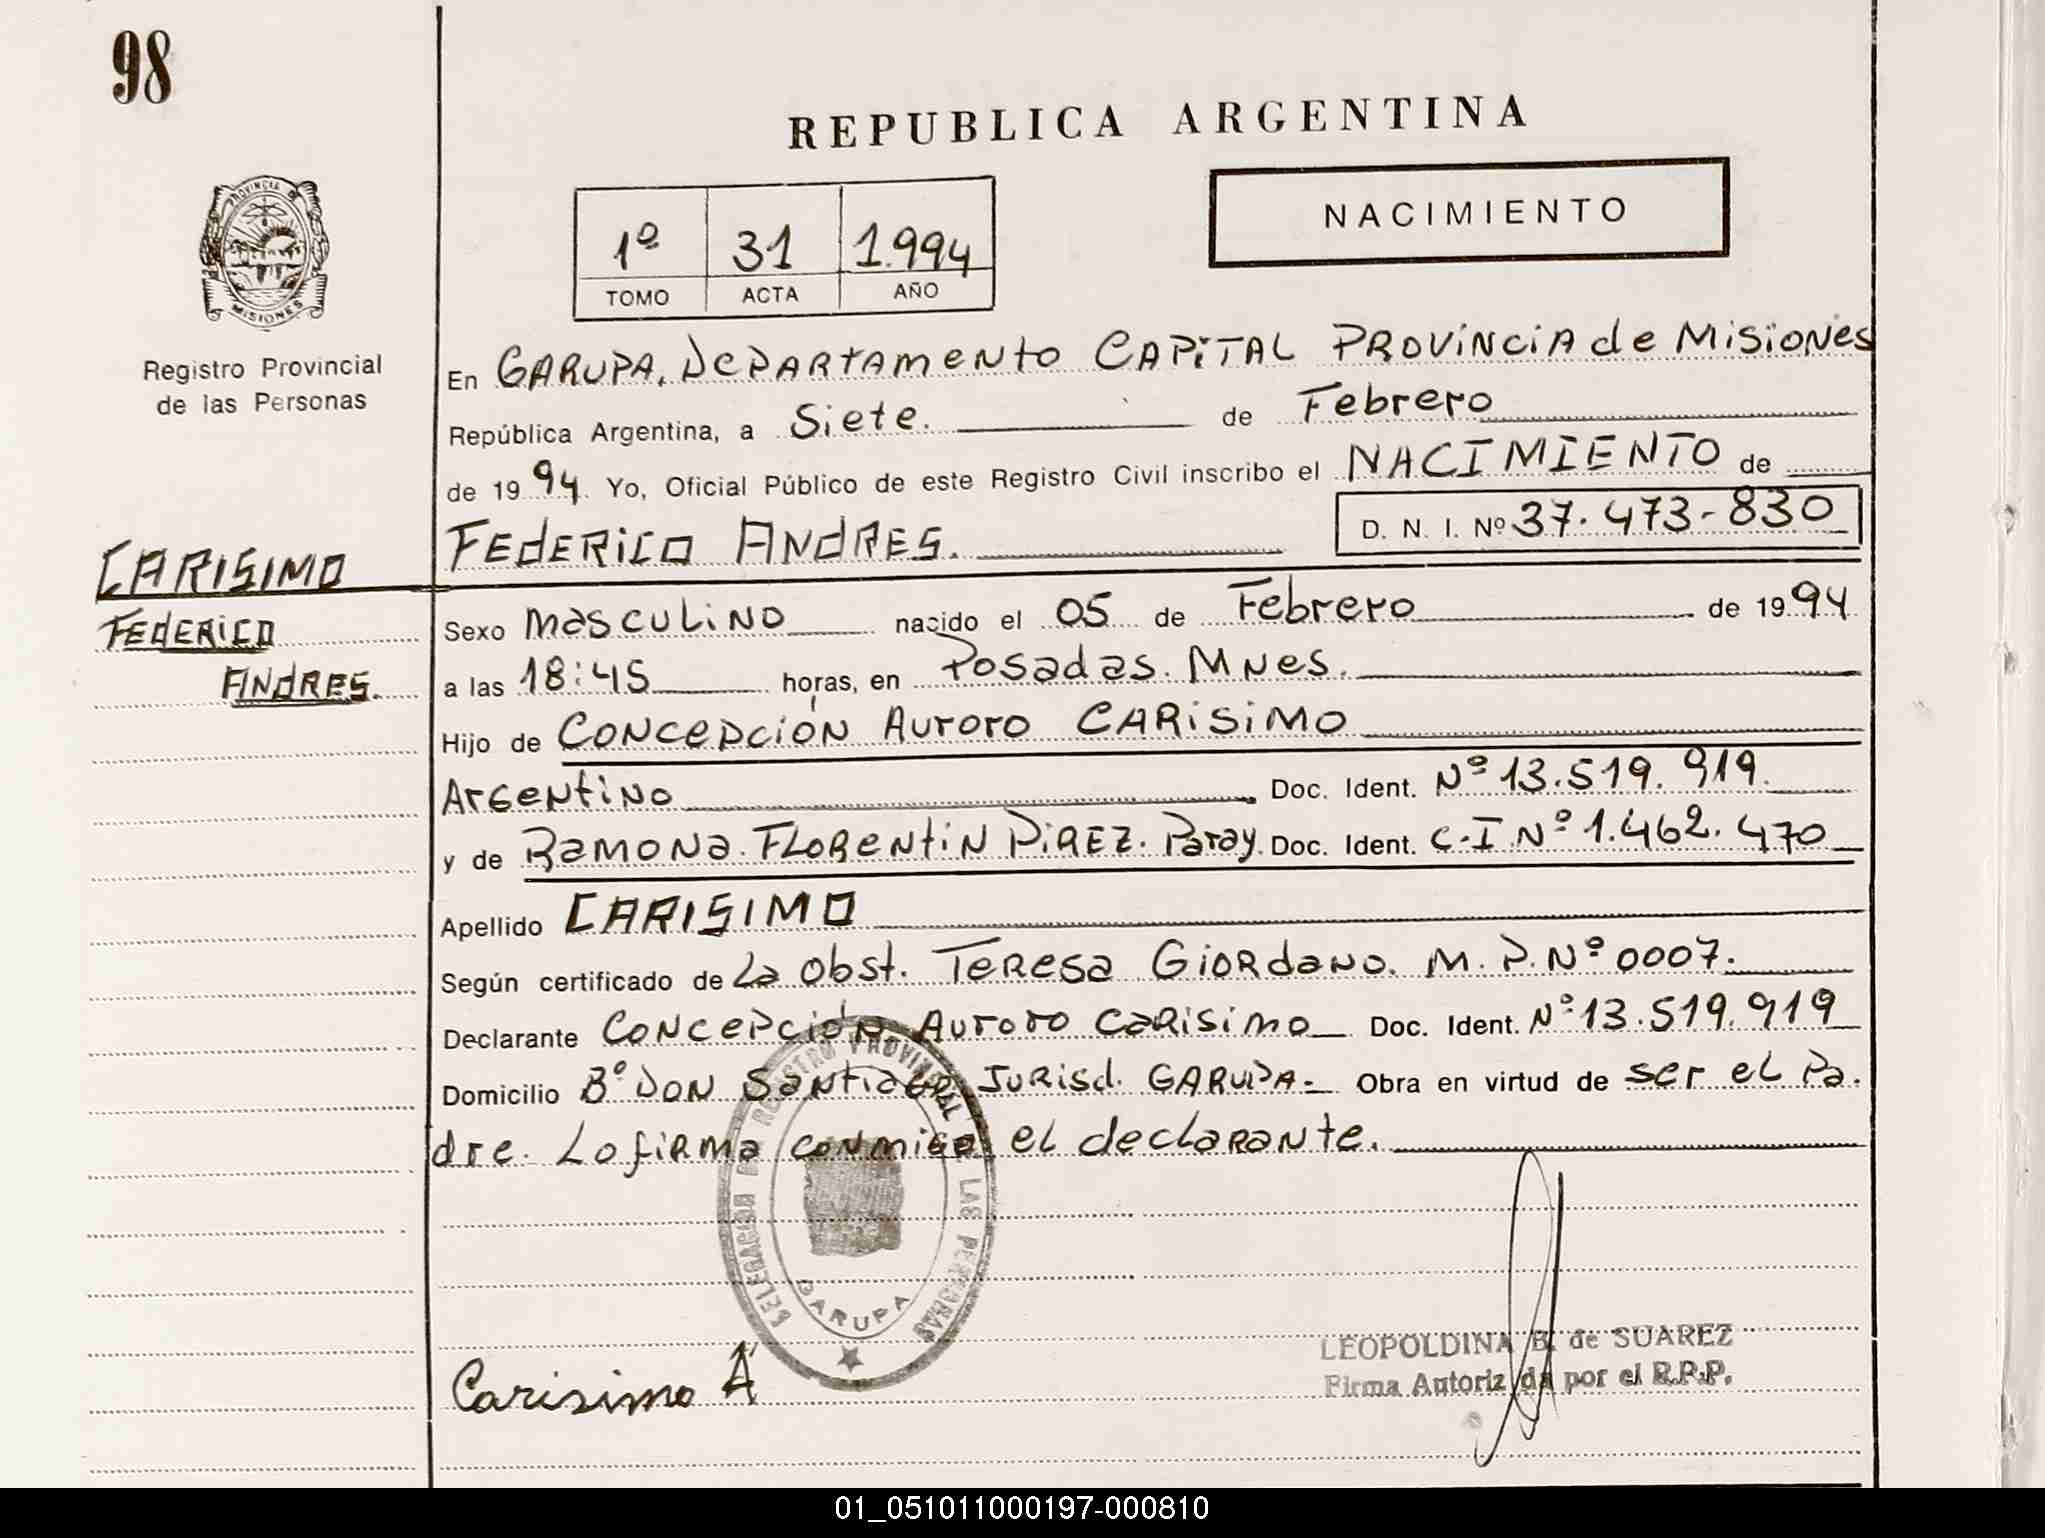 98
REPUBLICA ARGENTINA
NACIMIENTO
1º 31 1.994
TOMO ACTA AÑO
PROVINCIA DE
MISIONES
Registro Provincial
de las Personas
En GARUPA. DEPARTAMENTO CAPITAL PROVINCIA de MISIONES
República Argentina, a Siete. de Febrero
de 1994. Yo, Oficial Público de este Registro Civil inscribo el NACIMIENTO de
FEDERICO ANDRES. D. N. I. Nº 37.473-830
CARISIMO
FEDERICO
ANDRES.
Sexo masculino nacido el 05 de Febrero de 1994
a las 18:45 horas, en Posadas. Mnes.
Hijo de Concepción Auroro CARISIMO
Argentino Doc. Ident. Nº 13.519.919.
y de Ramona. Florentin Pirez. Paray. Doc. Ident. C.I Nº 1.462.470
Apellido CARISIMO
Según certificado de La obst. Teresa Giordano. M.P. Nº 0007.
Declarante Concepción Auroro Carisimo Doc. Ident. Nº 13.519.919
Domicilio Bº Don Santiago Jurisd. GARUPA- Obra en virtud de ser el Pa.
dre. Lo firma conmigo el declarante.
DELEGACION DEL REGISTRO PROVINCIAL DE LAS PERSONAS
GARUPA
Carisimo A
LEOPOLDINA B. de SUAREZ
Firma Autorizada por el R.P.P.
01_051011000197-000810